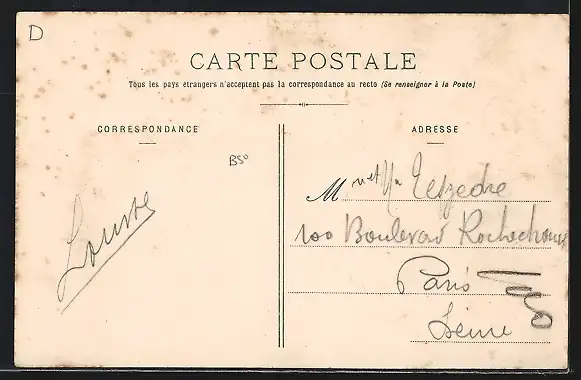 D
CARTE POSTALE
Tous les pays étrangers n'acceptent pas la correspondance au recto (Se renseigner à la Poste)
CORRESPONDANCE
ADRESSE
B50
M
Louise
100 Boulevard Rochechouart
Paris
Seine